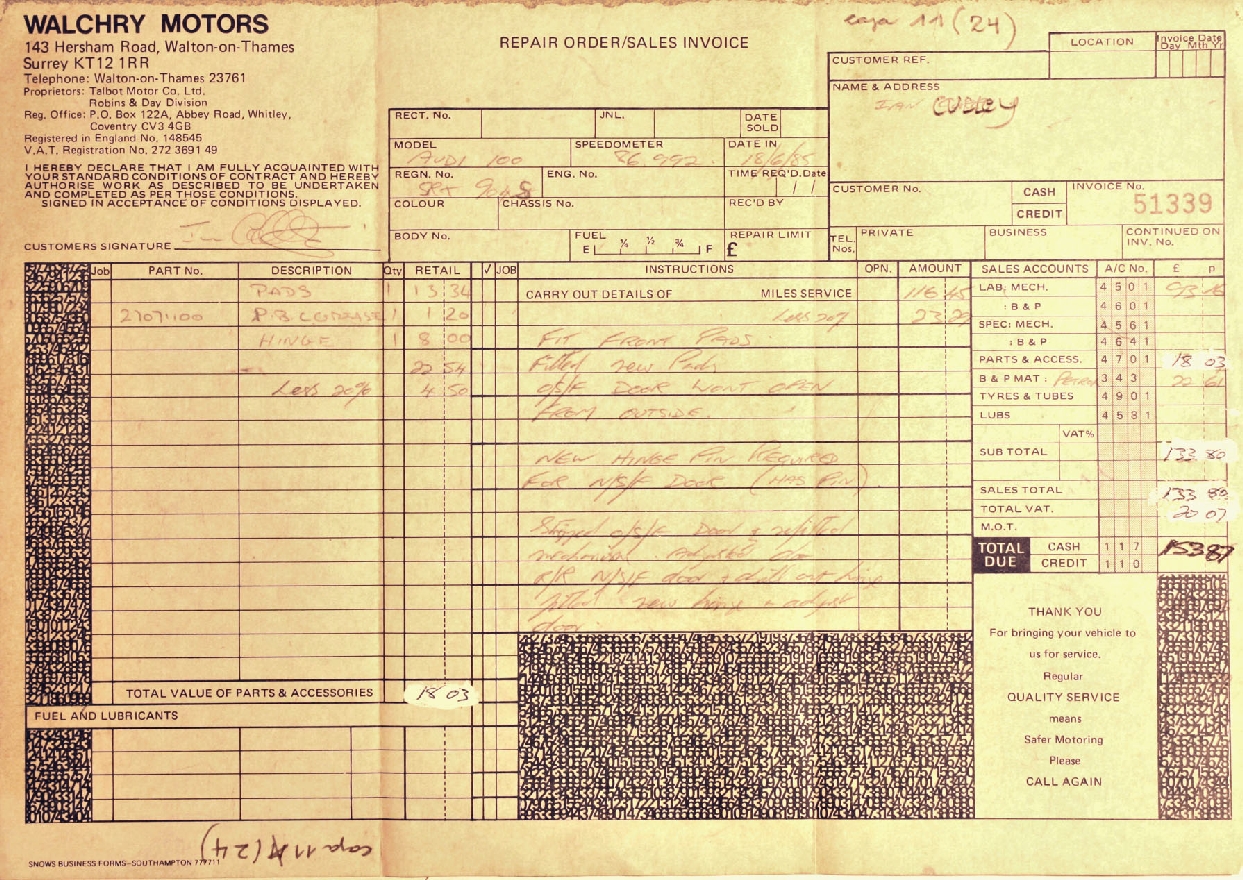 WALCHRY MOTORS
143 Hersham Road, Walton-on-Thames
Surrey KT12 1RR
Telephone: Walton-on-Thames 23761
Proprietors: Talbot Motor Co. Ltd.
Robins & Day Division
Reg. Office: P.O. Box 122A, Abbey Road, Whitley,
Coventry CV3 4GB
Registered in England No. 148545
V.A.T. Registration No. 272 3691 49
I HEREBY DECLARE THAT I AM FULLY ACQUAINTED WITH
YOUR STANDARD CONDITIONS OF CONTRACT AND HEREBY
AUTHORISE WORK AS DESCRIBED TO BE UNDERTAKEN
AND COMPLETED AS PER THOSE CONDITIONS.
SIGNED IN ACCEPTANCE OF CONDITIONS DISPLAYED.
CUSTOMERS SIGNATURE
REPAIR ORDER/SALES INVOICE
11 (24)
LOCATION
Invoice Date
Day Mth Yr
CUSTOMER REF.
NAME & ADDRESS
IVAN
RECT. No. JNL. DATE SOLD
MODEL AUDI 100 SPEEDOMETER 86,992 DATE IN 18/6/85
REGN. No. ENG. No. TIME REQ'D. Date / /
COLOUR CHASSIS No. REC'D BY
BODY No. FUEL E ¼ ½ ¾ F REPAIR LIMIT £
CUSTOMER No. CASH CREDIT INVOICE No. 51339
TEL. Nos. PRIVATE BUSINESS CONTINUED ON INV. No.
Job PART No. DESCRIPTION Qty RETAIL ✓ JOB INSTRUCTIONS OPN. AMOUNT
PADS 1 13 34
2707400 1 1 20
HINGE 1 8 00
22 54
Less 20% 4 50
TOTAL VALUE OF PARTS & ACCESSORIES 18 03
FUEL AND LUBRICANTS
CARRY OUT DETAILS OF MILES SERVICE 116 45
Less 20% 23 29
FIT FRONT PADS
Fitted new Pads
O/S/F DOOR WONT OPEN
FROM OUTSIDE.
NEW HINGE PIN REQUIRED
FOR N/S/F DOOR (HAS PIN)
Stripped O/S/F Door & refitted
mechanism. Adjusted
R/R N/S/F door & drill out hinge
fitted new hinge & adjust
door.
SALES ACCOUNTS A/C No. £ p
LAB. MECH. 4501 93 16
: B & P 4601
SPEC: MECH. 4561
: B & P 4641
PARTS & ACCESS. 4701 18 03
B & P MAT : Petrol 343 22 61
TYRES & TUBES 4901
LUBS 4531
VAT%
SUB TOTAL 133 80
SALES TOTAL 133 80
TOTAL VAT. 20 07
M.O.T.
TOTAL DUE CASH 117 153 87
CREDIT 110
THANK YOU
For bringing your vehicle to
us for service.
Regular
QUALITY SERVICE
means
Safer Motoring
Please
CALL AGAIN
SNOWS BUSINESS FORMS–SOUTHAMPTON 777711